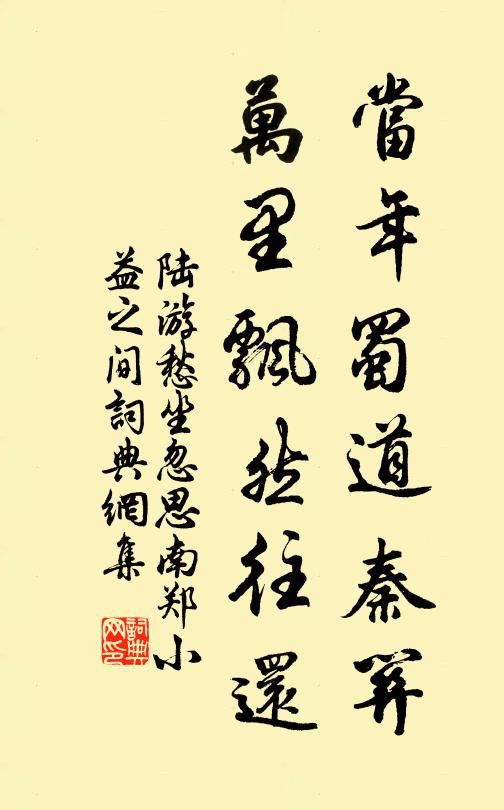 當年蜀道秦關
萬里飄然往還
陆游愁坐忽思南郑小
益之间詞典網集
詞典网印